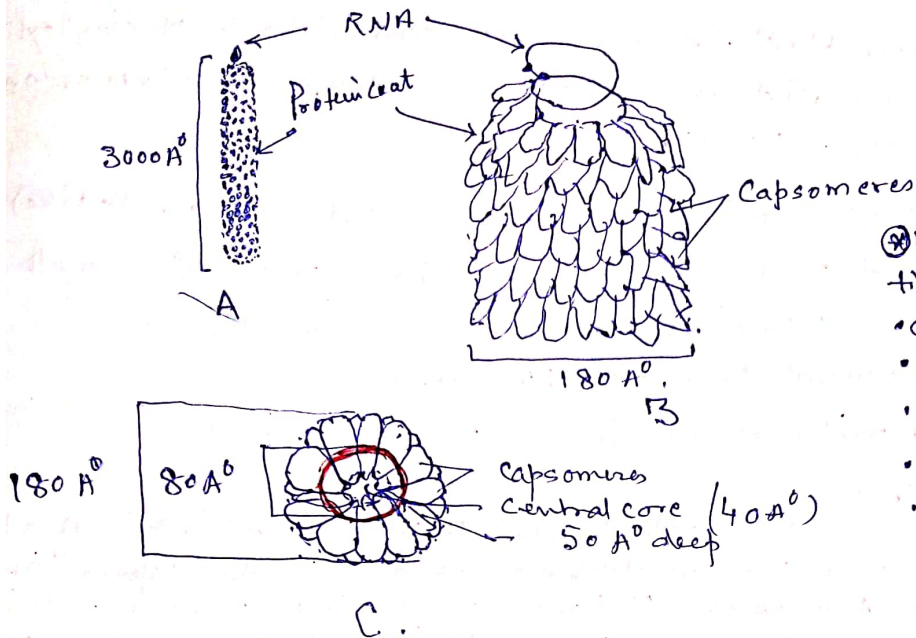 RNA
Protein coat
3000A⁰
A
Capsomeres
180 A⁰.
B
180 A⁰
80A⁰
Capsomeres
Central core (40A⁰)
50 A⁰ deep
C.